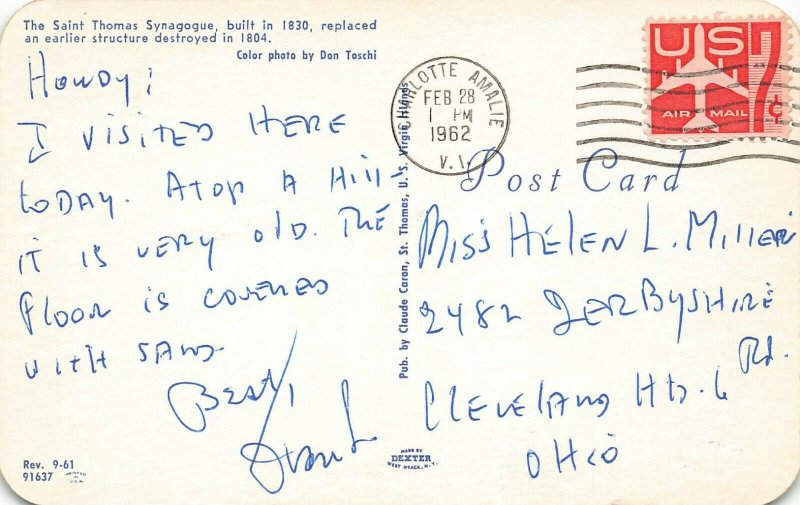 The Saint Thomas Synagogue, built in 1830, replaced
an earlier structure destroyed in 1804.
Color photo by Don Toschi
Howdy!
I VISITED HERE
TODAY. ATOP A Hill
IT IS VERY OLD. THE
FLOOR IS COVERED
WITH SAND.
Best,
Rev. 9-61
91637
PRINTED
IN
U.S.A.
Pub. by Claude Caron, St. Thomas, U. S. Virgin Islands
MADE BY
DEXTER
WEST NYACK, N.Y.
CHARLOTTE AMALIE
FEB 28
1 PM
1962
V.I.
US
7
¢
AIR MAIL
Post Card
MISS HELEN L. MILLER
2482 DERBYSHIRE
Rd.
CLEVELAND Hts. 6
OHIO